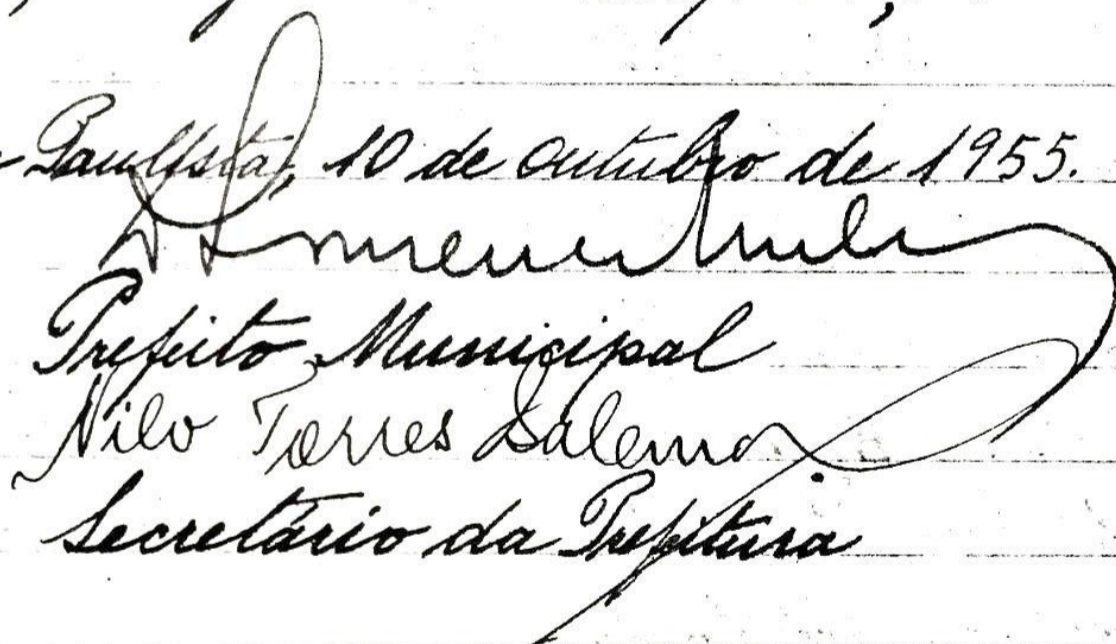 Paulista, 10 de outubro de 1955.
Prefeito Municipal
Nilo Torres Salerno
Secretário da Prefeitura